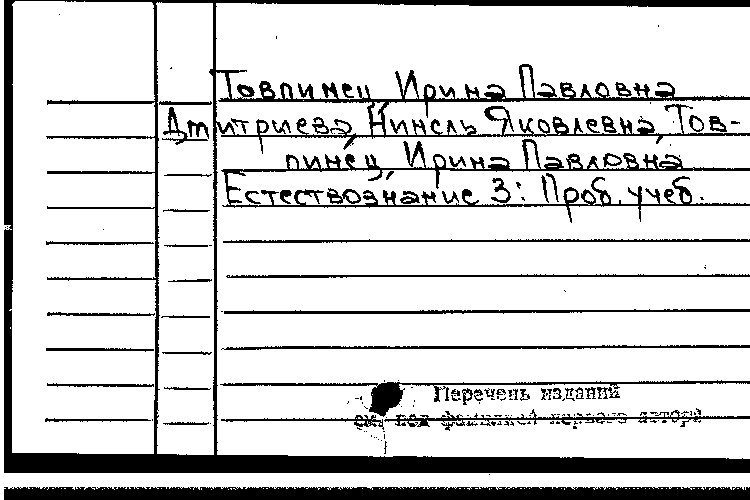 Товпинец Ирина Павловна
Дмитриева, Нинель Яковлевна, Тов-
пинец, Ирина Павловна
Естествознание 3: Проб. учеб.
Перечень изданий
см. под фамилией первого автора